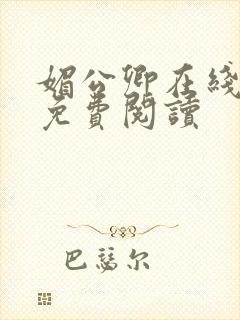 媚公卿在綫
免費閱讀
巴瑟尔